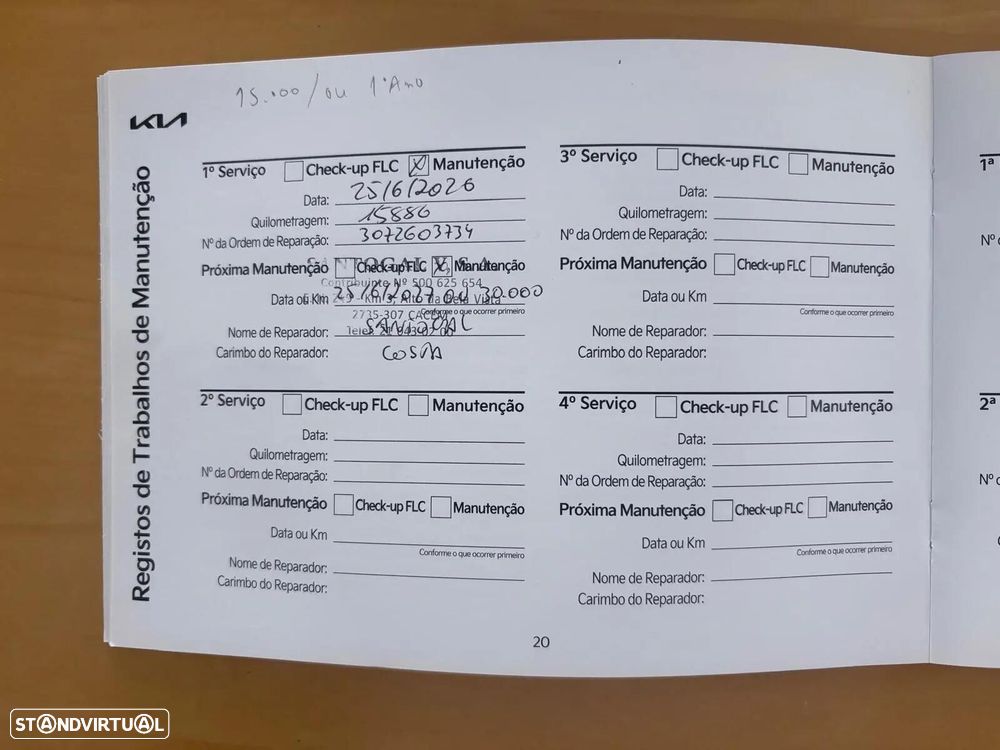 15.000/ou 1ºAno
KIA
Registos de Trabalhos de Manutenção
1º Serviço Check-up FLC X Manutenção
Data: 25/6/2026
Quilometragem: 15886
Nº da Ordem de Reparação: 3072603734
Próxima Manutenção Check-up FLC X Manutenção
SANTOGAL V, S.A.
Contribuinte Nº 500 625 654
Data ou Km 25/6/2027 ou 30.000
249 - Km 3, Alto da Bela Vista
Conforme o que ocorrer primeiro
2735-307 CACÉM
Nome de Reparador: SANTOGAL
Carimbo do Reparador: COSTA
2º Serviço Check-up FLC Manutenção
Data:
Quilometragem:
Nº da Ordem de Reparação:
Próxima Manutenção Check-up FLC Manutenção
Data ou Km
Conforme o que ocorrer primeiro
Nome de Reparador:
Carimbo do Reparador:
3º Serviço Check-up FLC Manutenção
Data:
Quilometragem:
Nº da Ordem de Reparação:
Próxima Manutenção Check-up FLC Manutenção
Data ou Km
Conforme o que ocorrer primeiro
Nome de Reparador:
Carimbo do Reparador:
4º Serviço Check-up FLC Manutenção
Data:
Quilometragem:
Nº da Ordem de Reparação:
Próxima Manutenção Check-up FLC Manutenção
Data ou Km
Conforme o que ocorrer primeiro
Nome de Reparador:
Carimbo do Reparador:
20
1ª
Nº
2ª
Nº
STANDVIRTUAL